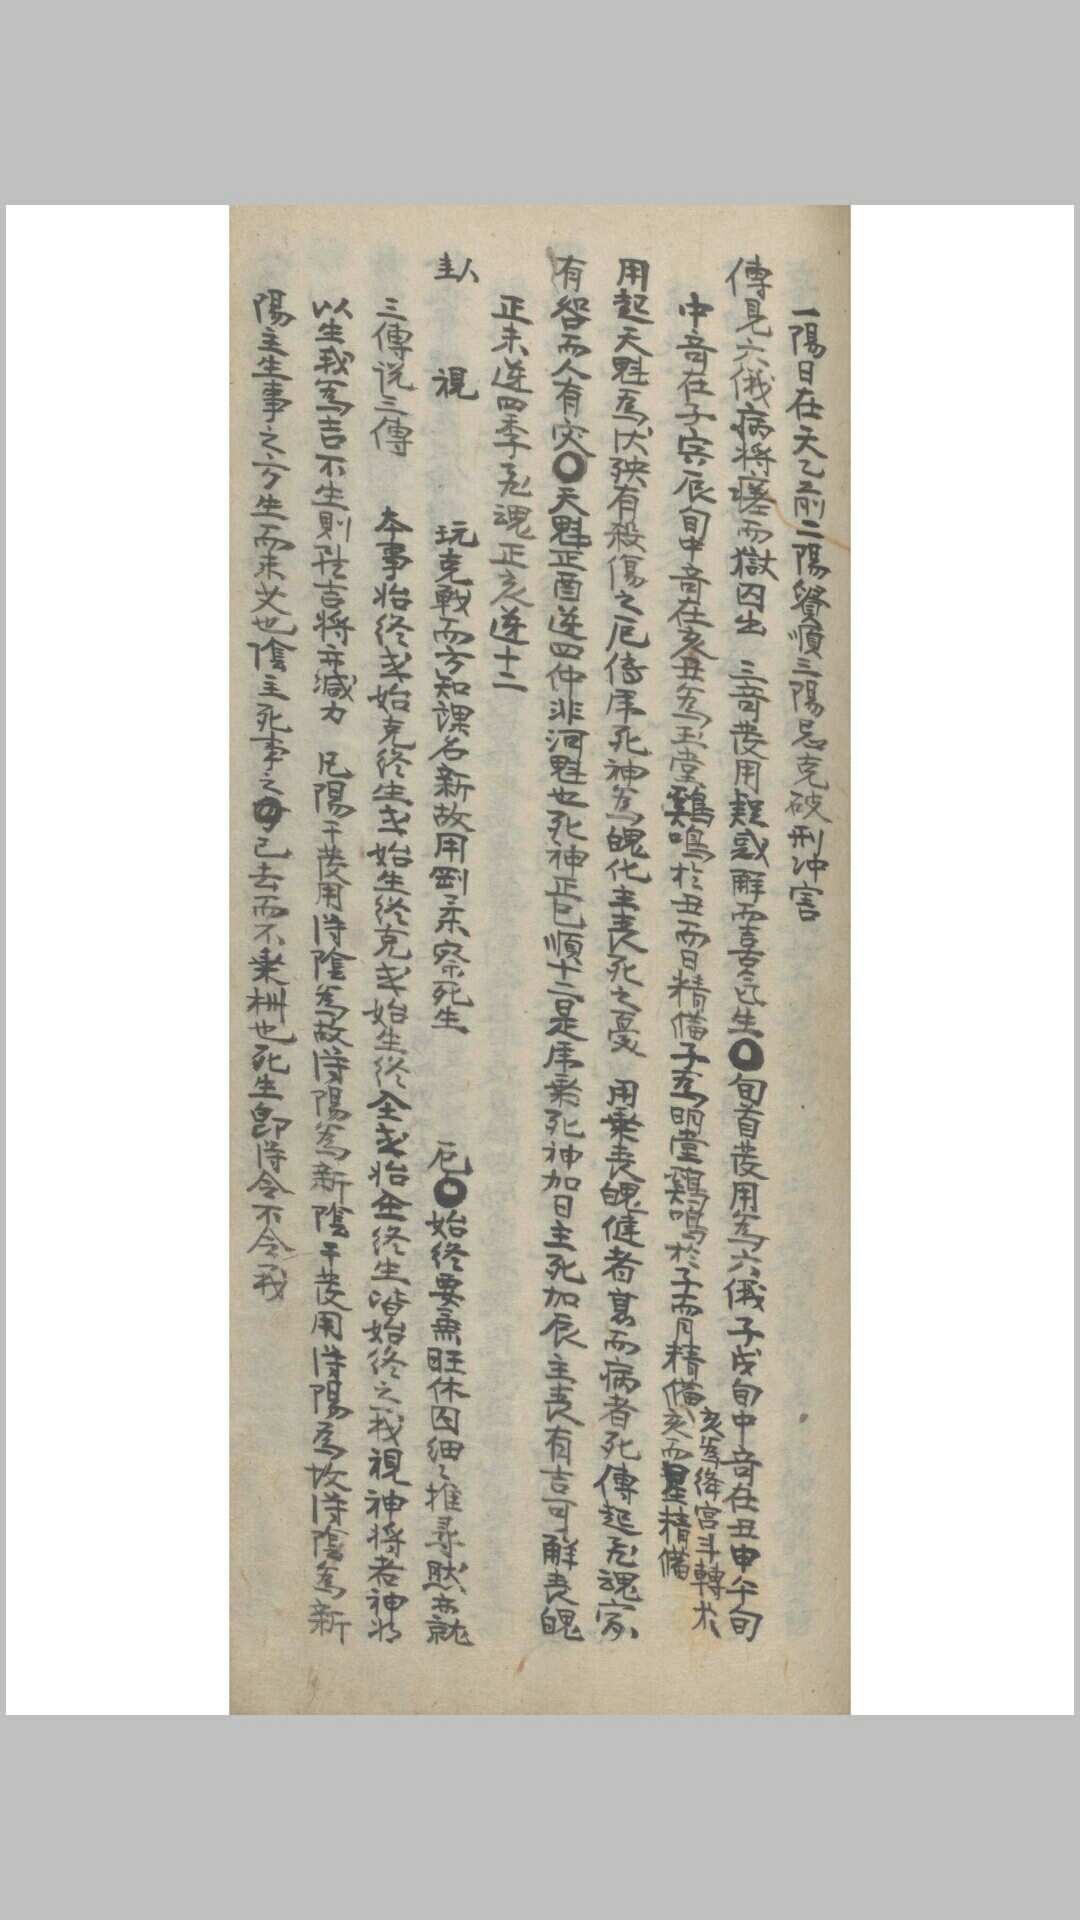 一陽日在天乙前二陽發順三陽忌克破刑冲害
傳見六儀病將瘥而獄囚生 三奇發用疑惑解而喜気生〇旬首發用為六儀子戌旬中奇在丑申午旬
中奇在子寅辰旬中奇在亥丑為玉堂鷄鳴於丑而日精備子為明堂鷄鳴於子而月精備亥為絳宮斗轉於亥而星精備
用起天魁為伏殃有殺傷之厄傍虎死神為魄化主喪死之憂 用乘喪魄健者甚而病者死傳起飛魂家
有咎而人有灾〇天魁正酉逆四仲非河魁也死神正巳順十二是虎乘死神加日主死加辰主喪有吉可解喪魄
正未逆四季飛魂正亥逆十二
卦 視 玩克戰而方知課名新故用剛柔察死生 厄〇始終要兼旺休囚細〻推尋然亦就
三傳说三傳 本事始終或始克終生或始生終克或始生終仝或始仝終生皆始終之我視神將者神將
以生我為吉不生則雖吉將亦減力 凡陽干發用得陰為故得陽為新陰干發用得陽為故得陰為新
陽主生事之方生而未艾也陰主死事之已去而不乘也死生即得令不令我